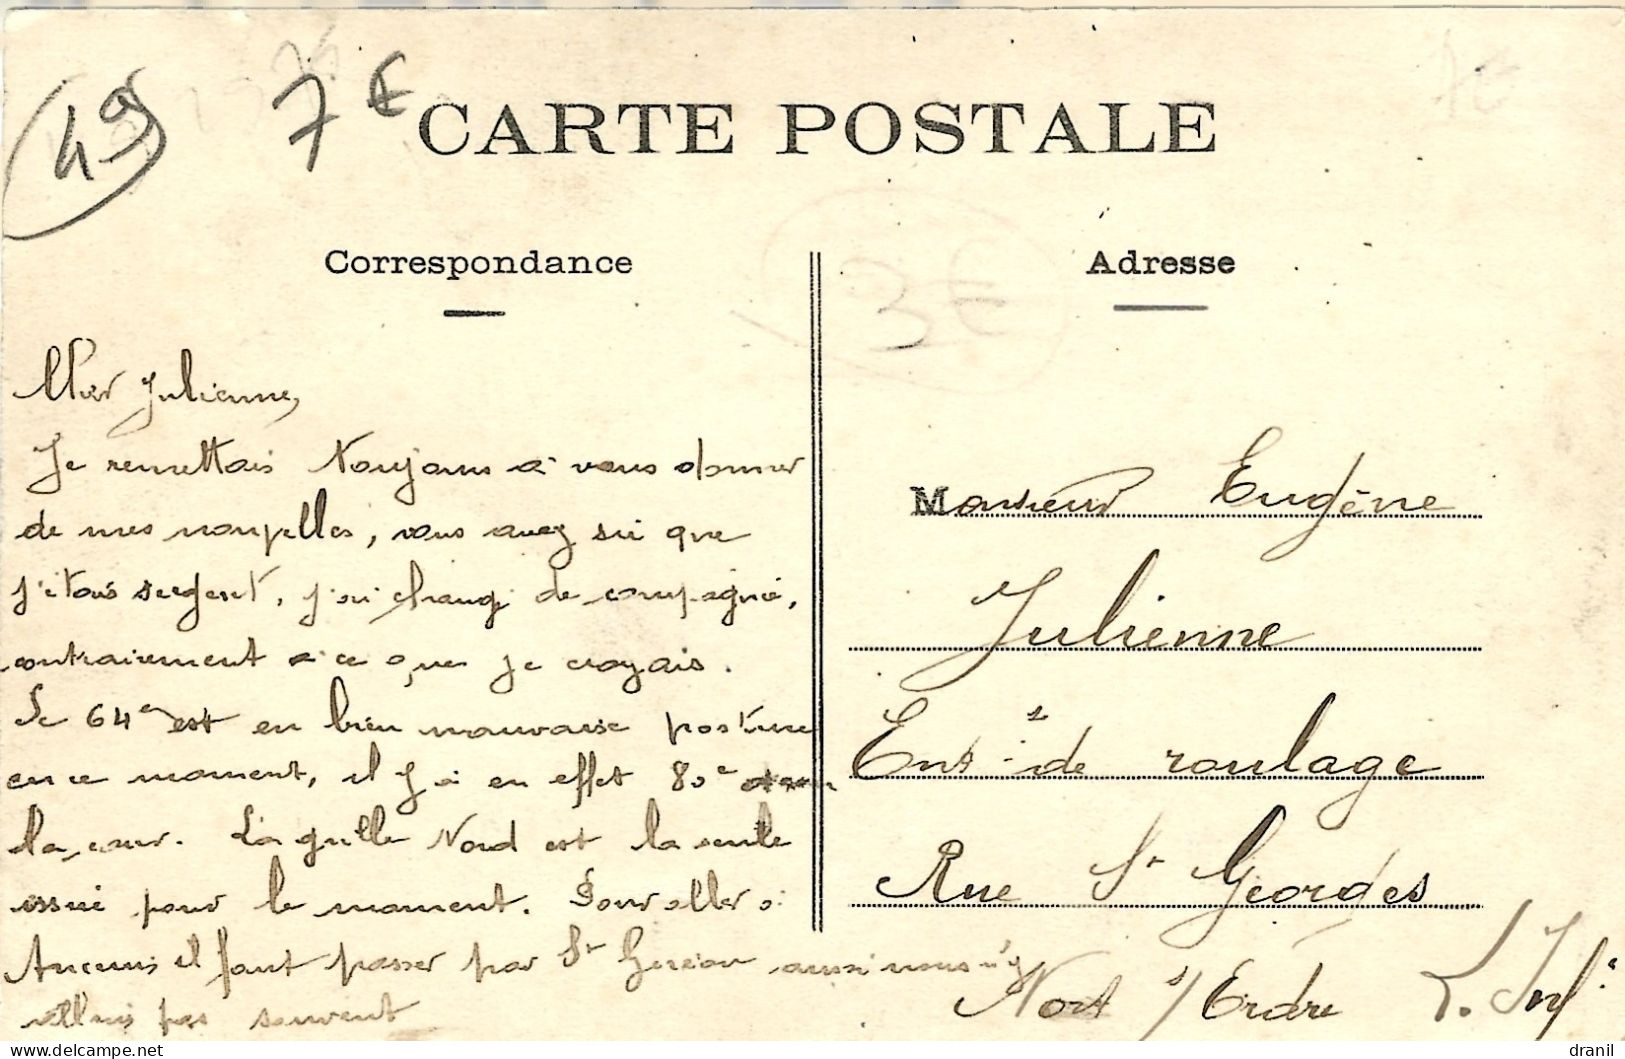 49
7€
CARTE POSTALE
Correspondance
Adresse
3€
Julienne,
Je remettais toujours à vous donner
de mes nouvelles, vous avez su que
j'étais sergent, j'ai changé de compagnie,
contrairement à ce que je croyais.
Le 64e est en bien mauvaise posture
en ce moment, il y a en effet 80 c
la cour. La grille Nord est la seule
issue pour le moment. Pour aller à
Ancenis il faut passer par St Géréon aussi nous n'y
allons pas souvent
Monsieur Eugène
Julienne
Entr de roulage
Rue St Georges
Nort s/Erdre L. Infre
dranil